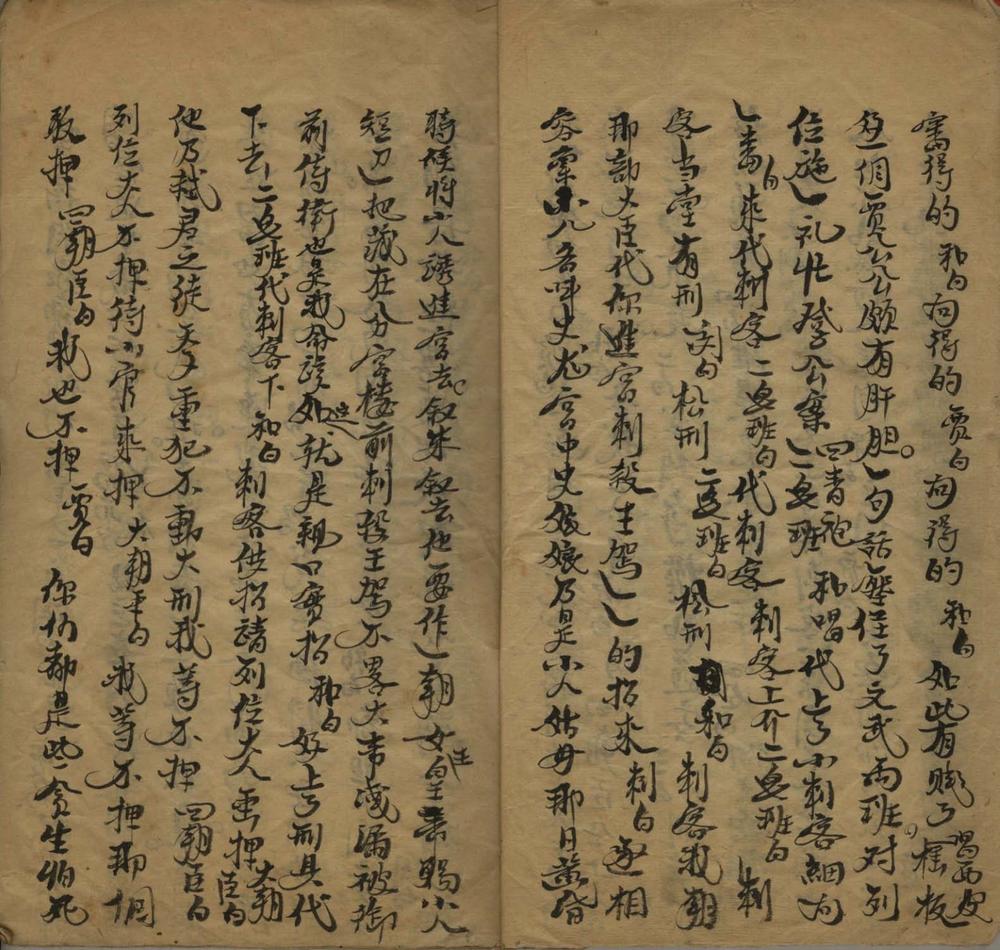 審得的 和白 向得的 賈白 向得的 和白 如此有賍了 唱西皮 搖板
這個賈公公頗有肝胆 一句話壓住了文武両班 对列
位施一礼忙登公案 四青袍 二旦班 和唱 代上了小刺客細向
一番 白 来代刺客 二旦班白 代刺客 刺客上介 二旦班白 刺
客当堂有刑 刘白 松刑 二旦班白 松刑 和白 刺客我朝
那部大臣代你進宮刺殺主駕 一一的招来 刺白 丞相
容稟小人名叫史龙宮中史娘娘乃是小人姑母那日黄昏
時候将小人誘進宮去叙来叙去他要作一朝女皇主帝賜小人
短刀一把藏在分宮楼前刺殺王駕不畧大事洩漏被御
前侍衛也是我命該如此這就是親口實招 和白 好上了刑具代
下去 二旦班代刺客下 和白 刺客供招請列位大人画押 大朝臣白
他乃弑君之徒天夕重犯不動大刑我等不押 四朝臣白
列位大人不押待小官来押 大朝臣白 我等不押那個
敢押 四朝臣白 我也不押 賈白 你們都是些貪生怕死